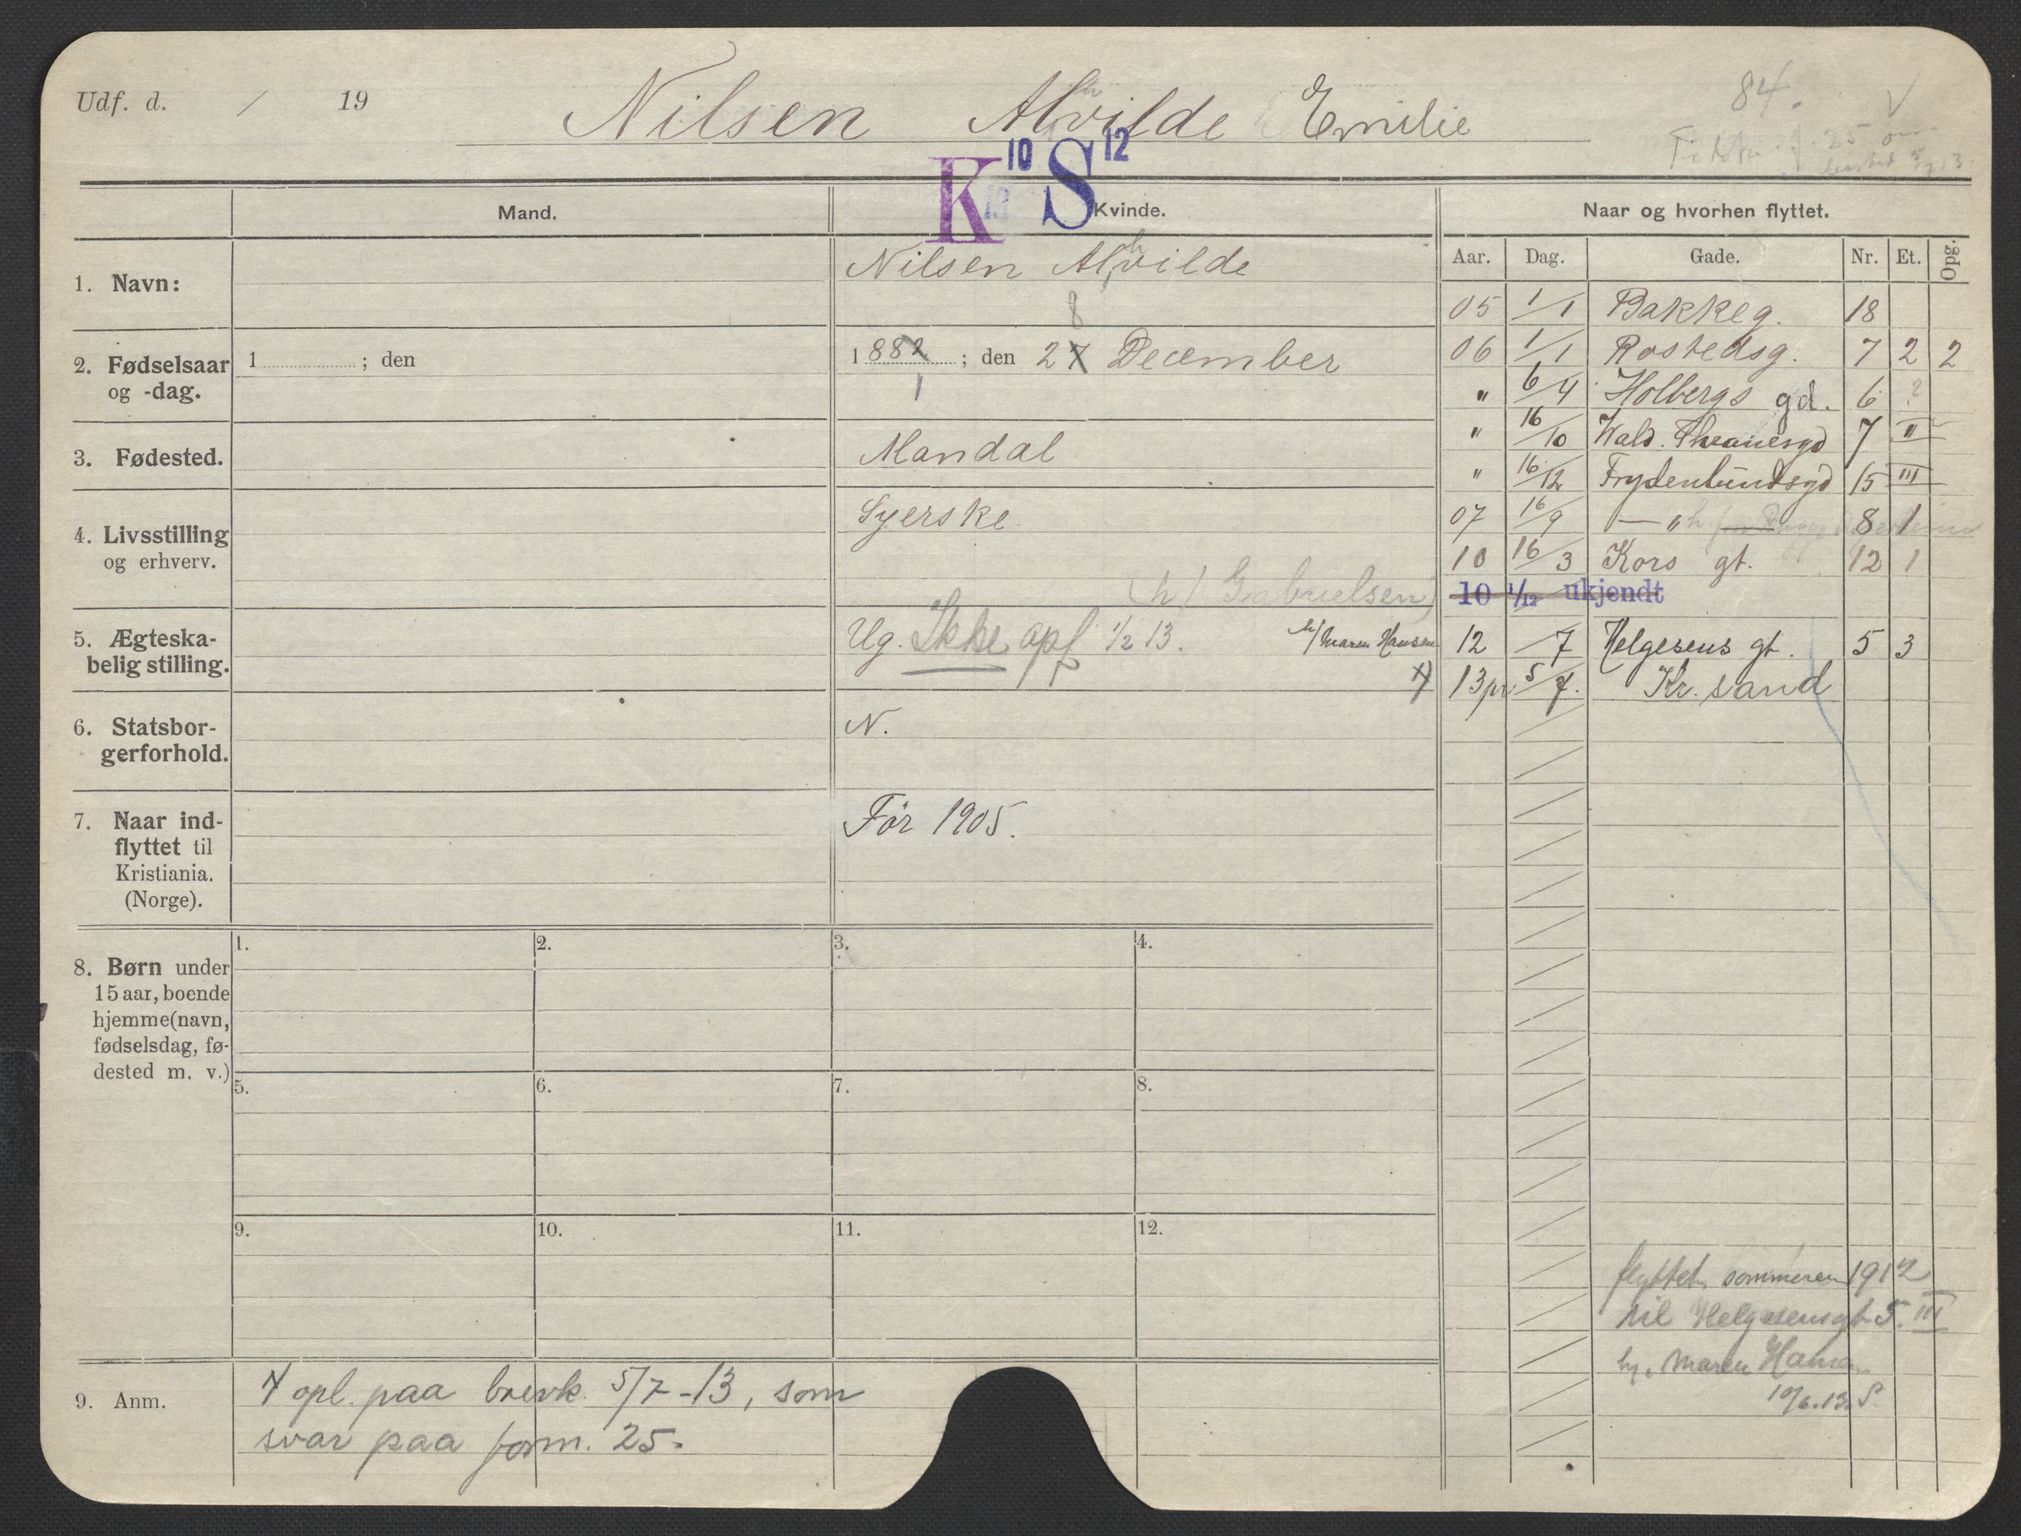 Udf. d. / 19
Nilsen Alvilde Emilie
h
84.
25
K 10 S 12
Mand.
Kvinde.
Naar og hvorhen flyttet.
Aar. Dag. Gade. Nr. Et. Opg.
1. Navn:
Nilsen Alvilde
h
2. Fødselsaar
og -dag.
1 ; den
8
1882 ; den 27 December
1
3. Fødested.
Mandal
4. Livsstilling
og erhverv.
Syerske.
(h/ Gabrielsen)
5. Ægteska-
belig stilling.
Ug. Ikke opf 1/2 13.
h/ Maren Hansen
6. Statsbor-
gerforhold.
N.
7. Naar ind-
flyttet til
Kristiania.
(Norge).
Før 1905.
8. Børn under
15 aar, boende
hjemme (navn,
fødselsdag, fø-
dested m. v.)
1. 2. 3. 4.
5. 6. 7. 8.
9. 10. 11. 12.
9. Anm.
opl. paa brevk. 5/7-13, som
svar paa form. 25.
05 1/1 Bakkeg. 18
06 1/1 Rostedsg. 7 2 2
" 6/4 Holbergs gd. 6 ?
" 16/10 Wald. Thranesgd 7 II
" 16/12 Frydenlundsgd 15 III
07 16/9 — " 8 1
10 16/3 Kors gt. 12 1
10 1/12 ukjendt
12 /7 Helgesens gt. 5 3
x) 13 pr 5/7. Kr. sand
flyttet sommeren 1912
til Helgesensgt 5. III
hy. Maren Hansen
10/6.13. S.